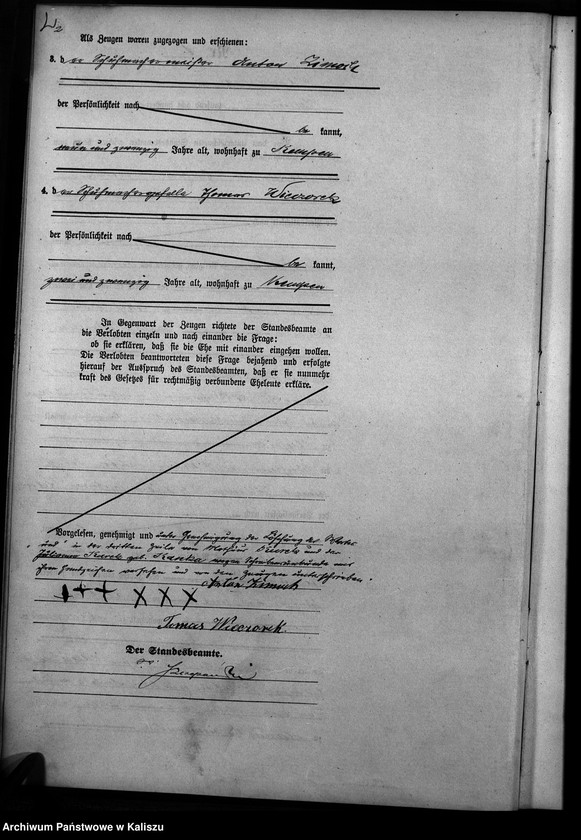 Als Zeugen waren zugezogen und erschienen:
3. der Schuhmachermeister Anton
der Persönlichkeit nach
be kannt,
neun und zwanzig Jahre alt, wohnhaft zu Kempen
4. der Schuhmachergeselle Thomas Wieczorek
der Persönlichkeit nach
be kannt,
zwei und zwanzig Jahre alt, wohnhaft zu Kempen
In Gegenwart der Zeugen richtete der Standesbeamte an
die Verlobten einzeln und nach einander die Frage:
ob sie erklären, daß sie die Ehe mit einander eingehen wollen.
Die Verlobten beantworteten diese Frage bejahend und erfolgte
hierauf der Ausspruch des Standesbeamten, daß er sie nunmehr
kraft des Gesetzes für rechtmäßig verbundene Eheleute erkläre.
Vorgelesen, genehmigt und unter Genehmigung der Löschung des Wortes
"und" in der dritten Zeile von und der
geb. wegen mit
ihren Handzeichen versehen und von den Zeugen unterschrieben.
+++ XXX
Tomas Wieczorek.
Der Standesbeamte.
Archiwum Państwowe w Kaliszu